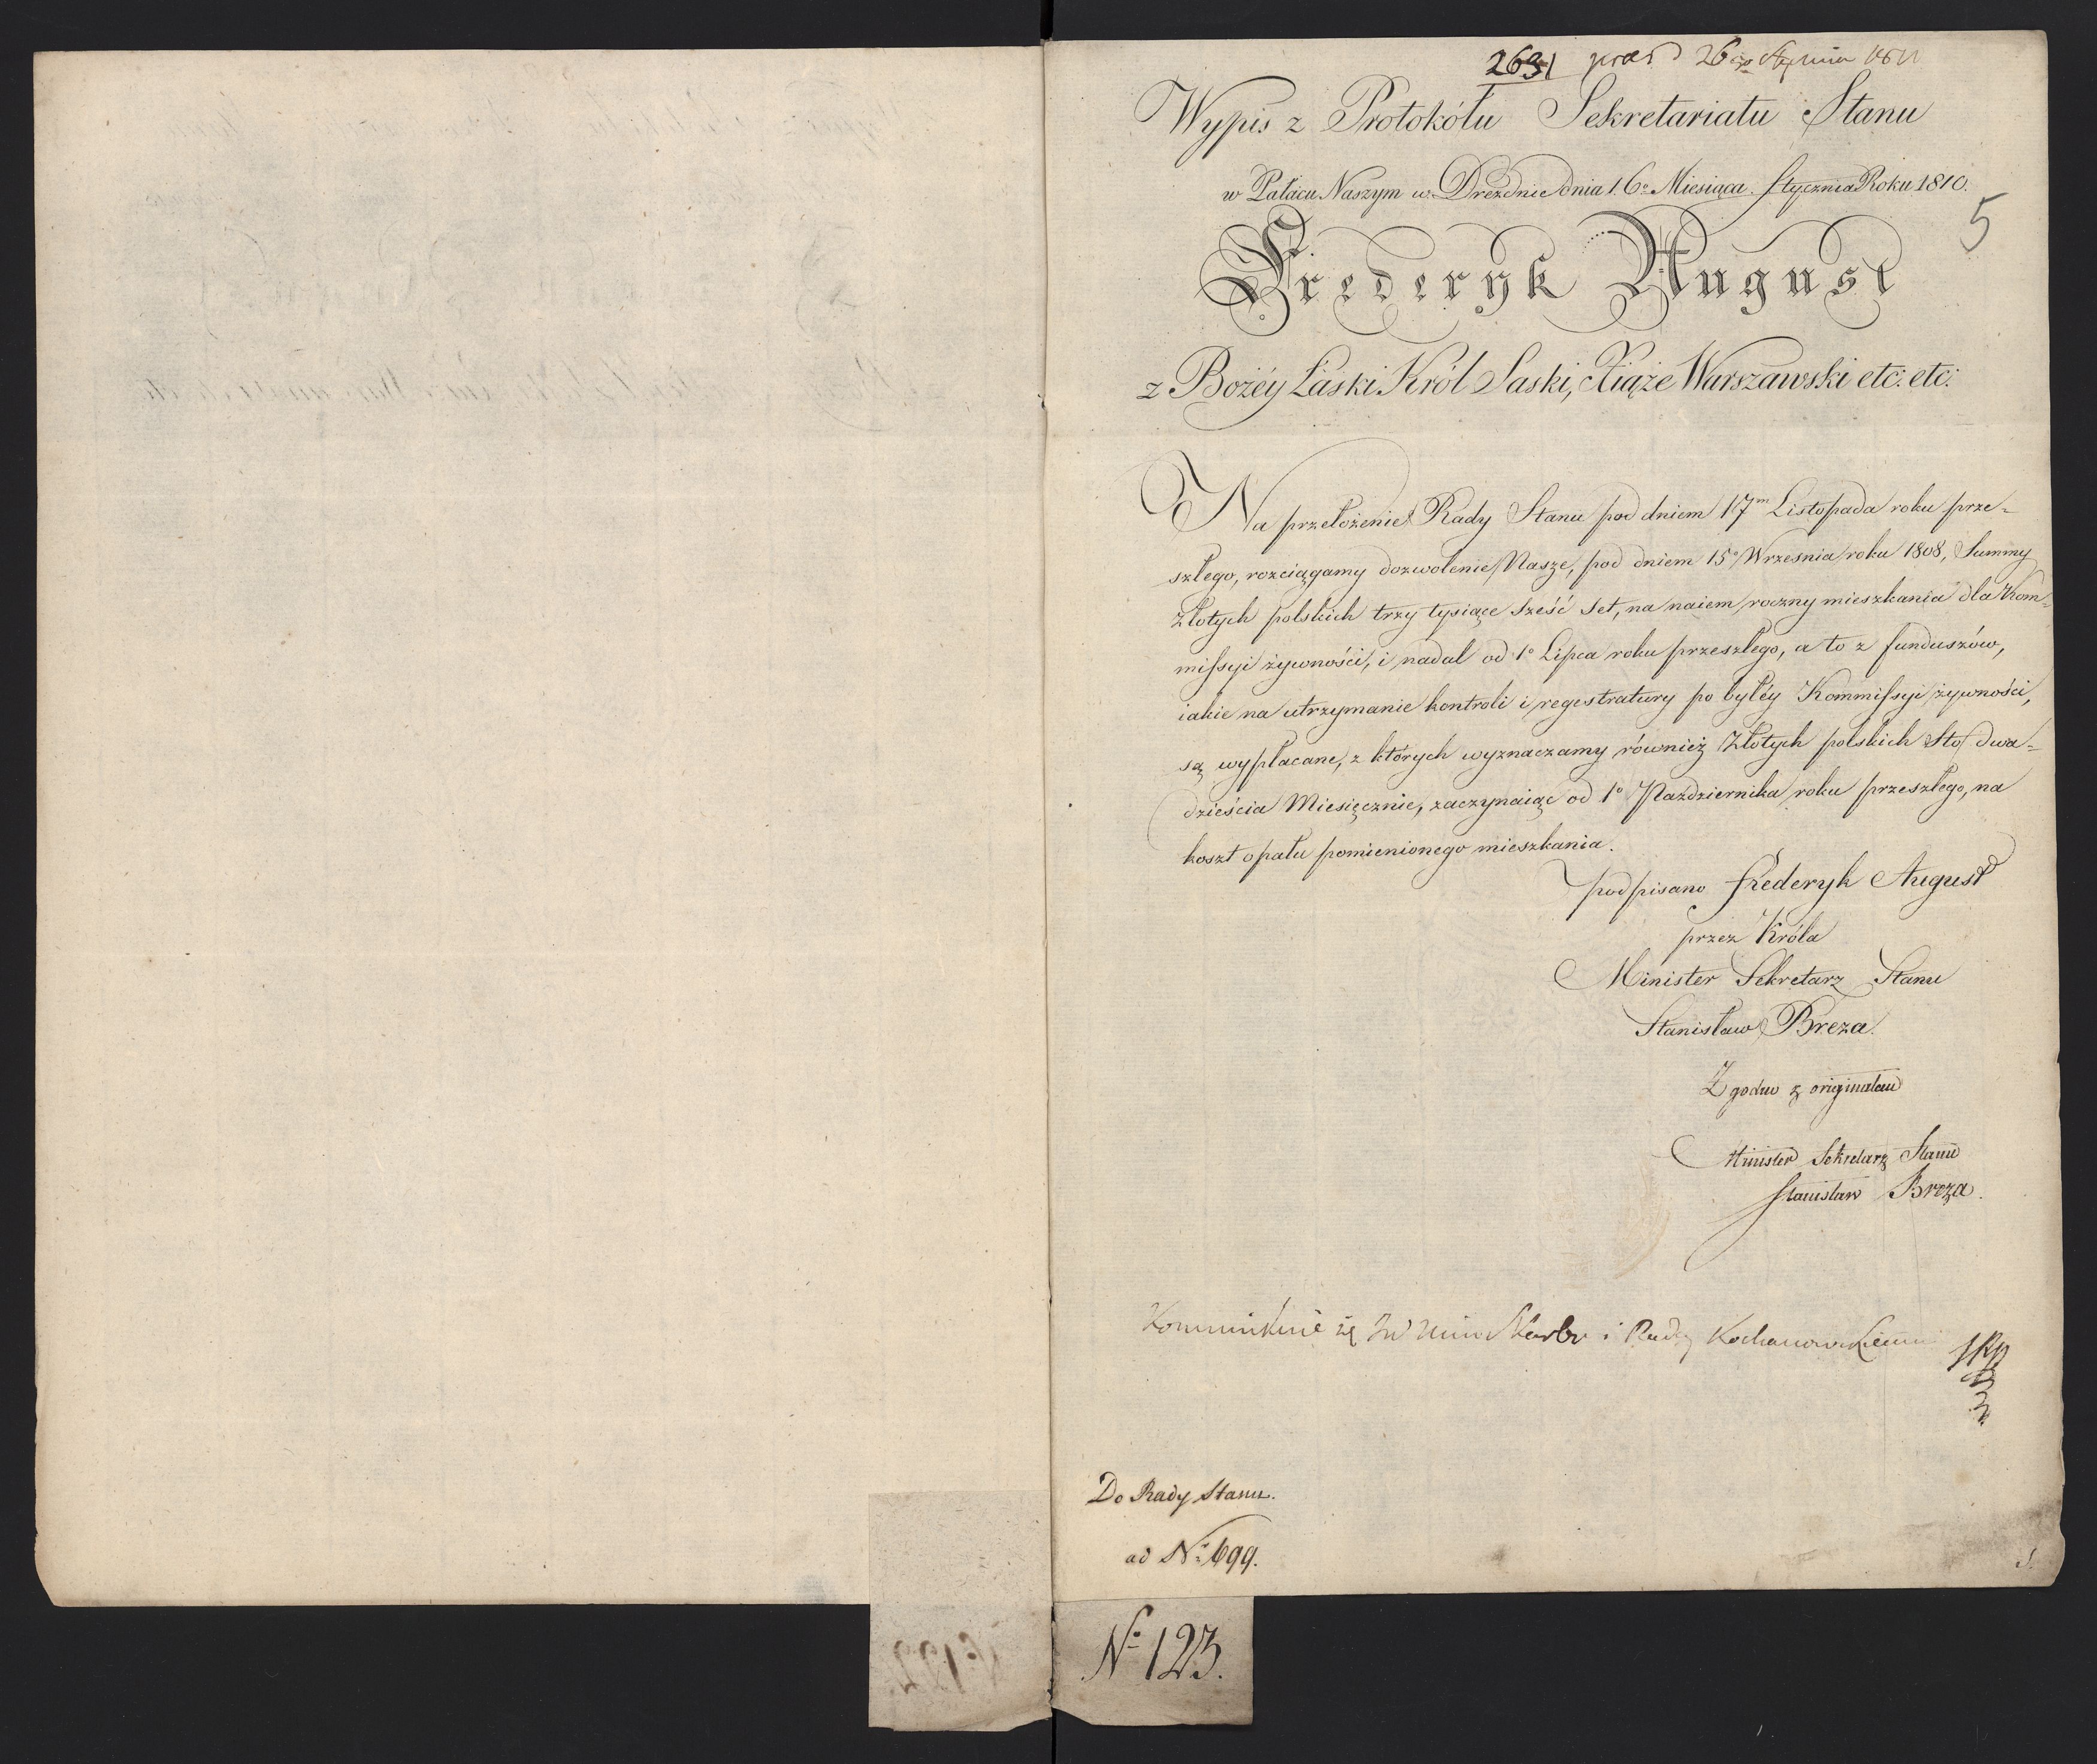 2631 26 Stycznia
Wypis z Protokółu Sekretariatu Stanu
w Pałacu Naszym w Dreźnie dnia 16º Miesiąca Stycznia Roku 1810.
5
Frederyk August
z Bożéy Łaski Król Saski, Xiąże Warszawski etc: etc:
Na przełożenie Rady Stanu pod dniem 17m Listopada roku prze-
szłego, rozciągamy dozwolenie Nasze, pod dniem 15º Wrzesnia roku 1808, Summy
złotych polskich trzy tysiące sześć set, na naiem roczny mieszkania dla Kom-
missyi żywności, i nadal od 1º Lipca roku przeszłego, a to z funduszów,
iakie na utrzymanie kontroli i regestratury po byłéy Kommissyi żywności,
są wypłacane, z których wyznaczamy również Złotych polskich Sto dwa-
dzieścia Miesięcznie, zaczynaiąc od 1º Października roku przeszłego, na
koszt opału pomienionego mieszkania.
podpisano Frederyk August
przez Króla
Minister Sekretarz Stanu
Stanisław Breza.
Zgodno z originałem
Minister Sekretarz Stanu
Stanisław Breza.
i Kochanowskiemu
Do Rady Stanu.
ad Nº 699.
Nº 123.
Nº 122.